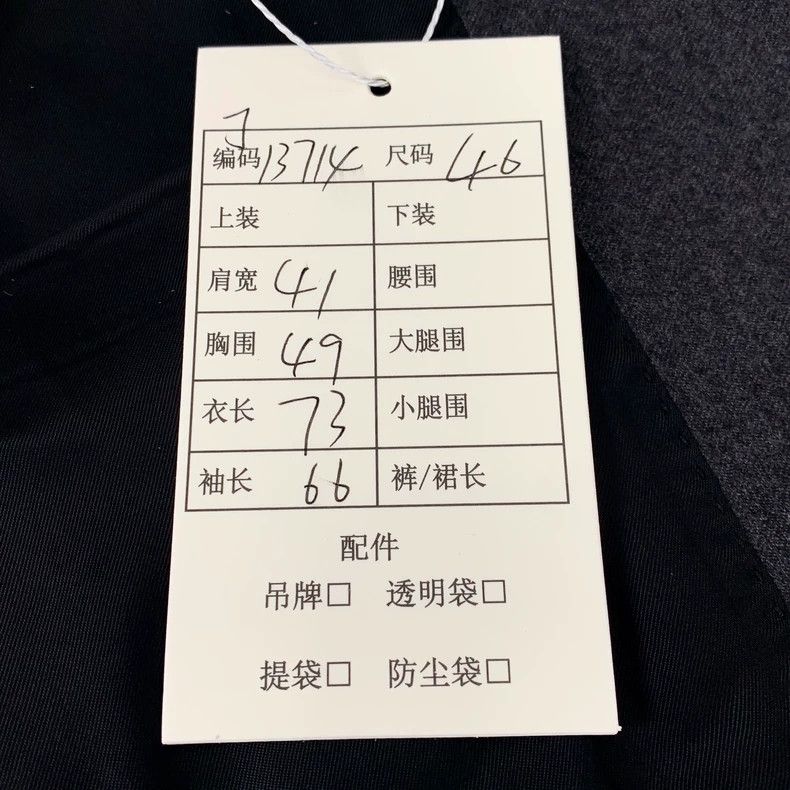 编码 13714 尺码 46
上装 下装
肩宽 41 腰围
胸围 49 大腿围
衣长 73 小腿围
袖长 66 裤/裙长
配件
吊牌□ 透明袋□
提袋□ 防尘袋□